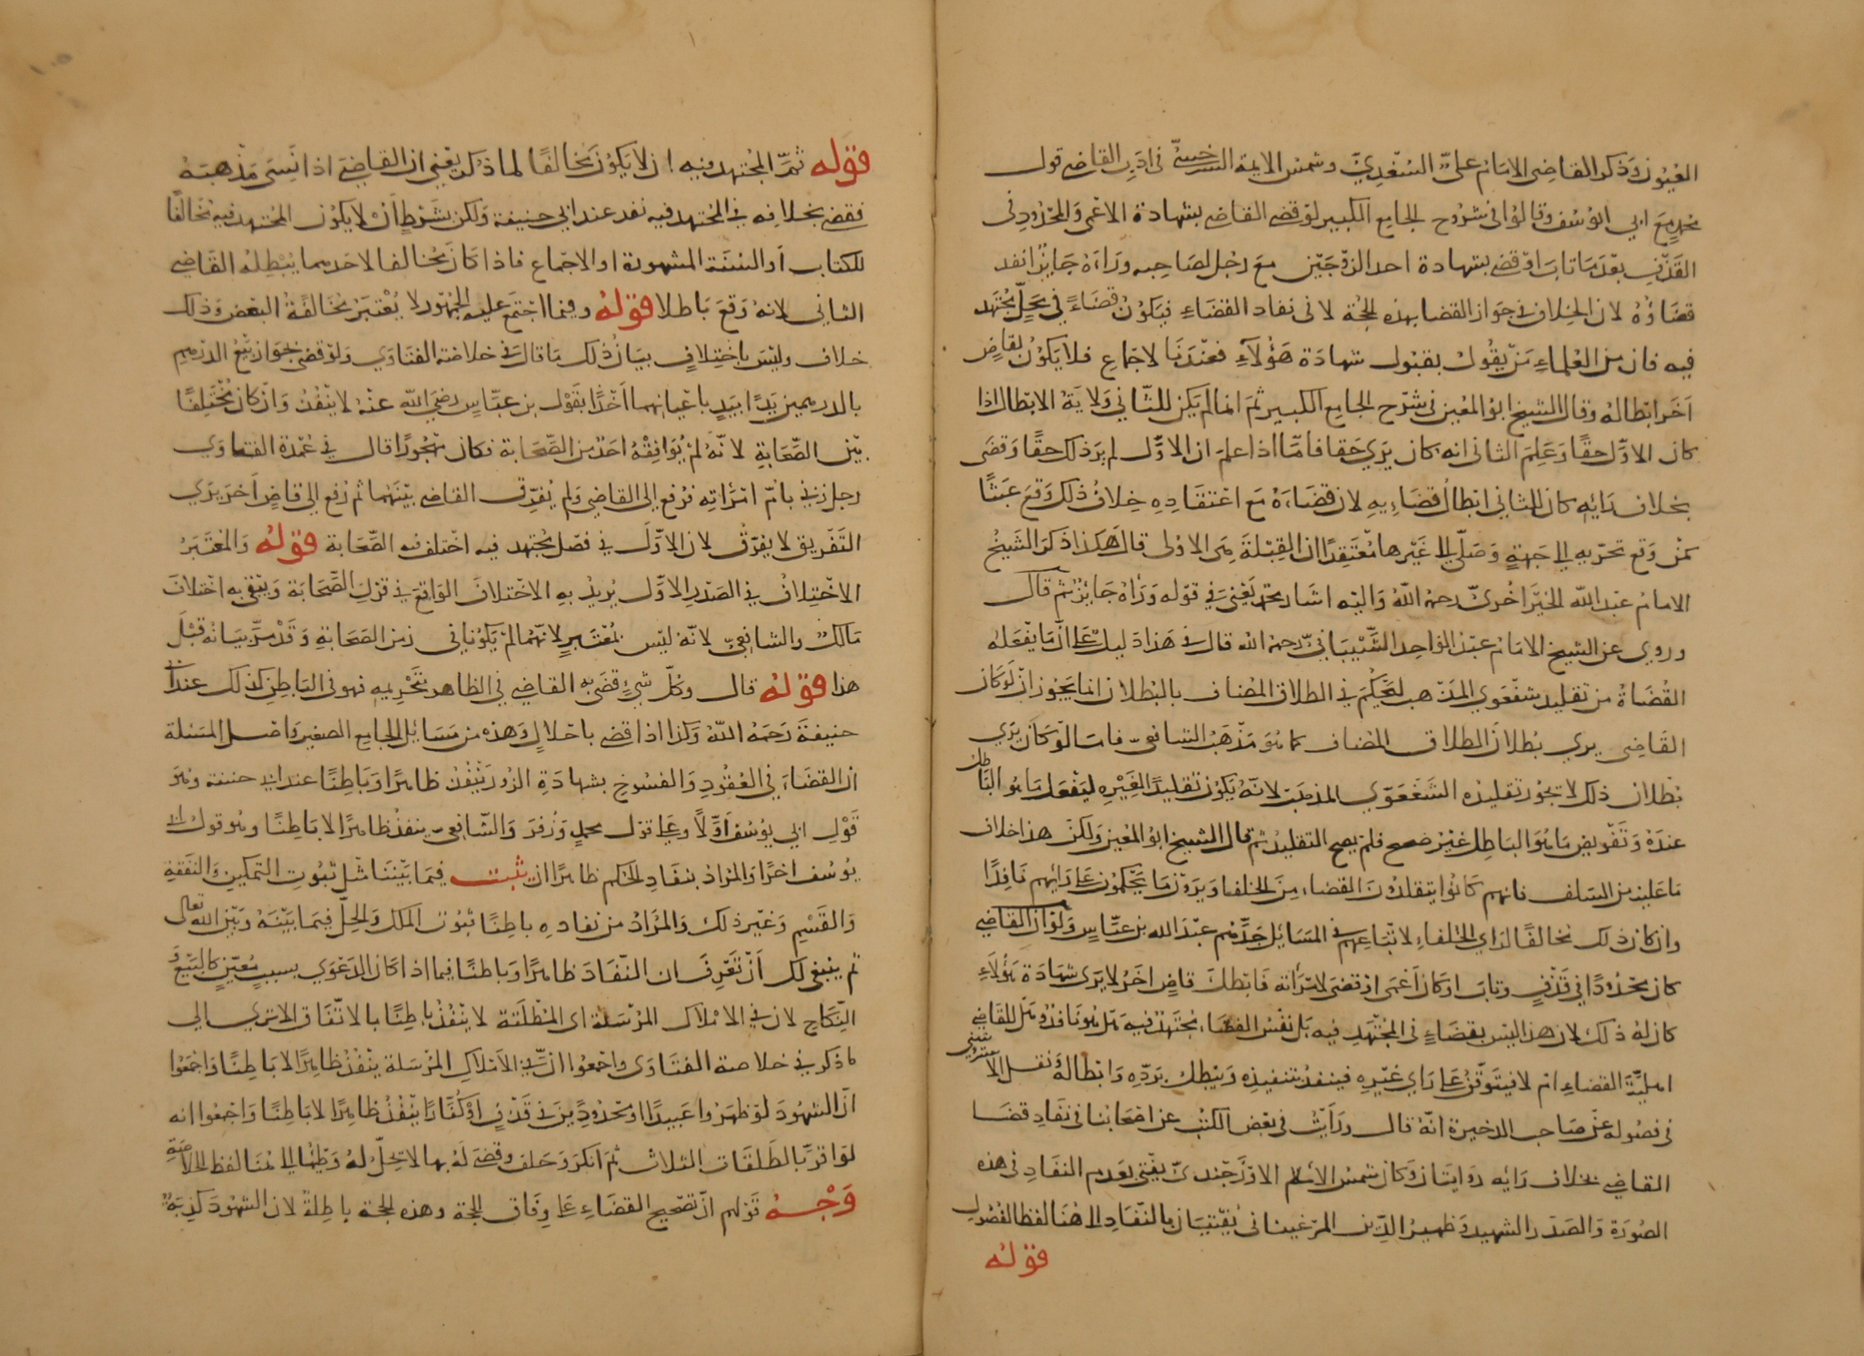 العيون وذكر القاضي الامام علي السغدي وشمس الايمة السرخسي في ادب القاضي قول
محمد مع ابي يوسف وقالوا في شروح الجامع الكبير لو قضى القاضي بشهادة الاعمى والمحدود في
القذف بعد ما تاب او قضى بشهادة احد الزوجين مع رجل لصاحبه وراه جائزا نفد
قضاؤه لان الخلاف في جواز القضا بهذه الحجة لا في نفاد القضاء فيكون قضاء في محل مجتهد
فيه فان من العلماء من يقول بقبول شهادة هؤلاء فعندنا لاجماع فلا يكون لقاض
اخر ابطاله وقال الشيخ ابو المعين في شرح الجامع الكبير ثم انما لم يكن للثاني ولاية الابطال اذا
كان الاول حقا وعلم الثاني انه كان يرى حقا فاما اذا علم ان الاول لم ير ذلك حقا وقضى
بخلاف رايه كان للثاني ابطال قضايه لان قضاءه مع اعتقاده خلاف ذلك وقع عبثا
كمن وقع تحريه الى جهة وصلى الى غيرها معتقدا ان القبلة هي الاولى قال هكذا ذكر الشيخ
الامام عبد الله الخيزاخزي رحمه الله واليه اشار محمد يعني في قوله وراه جائزا ثم قال
وروي عن الشيخ الامام عبد الواحد الشيباني رحمه الله قال في هذا دليل على ان ما يفعله
القضاة من تقليد شفعوي المذهب ليحكم في الطلاق المضاف بالبطلان انما يجوز ان لو كان
القاضي يرى بطلان الطلاق المضاف كما هو مذهب الشافعي فاما لو كان يرى
بطلان ذلك لا يجوز تقليده الشفعوي المذهب لانه يكون تقليدا لغيره ليفعل ما هو الباطل
عنده وتفويض ما هو الباطل غير صحيح فلم يصح التقليد ثم قال الشيخ ابو المعين ولكن هذا خلاف
ما عليه من السلف فانهم كانوا يتقلدون القضاء من الخلفا ويرون ما يحكمون على رايهم نافذا
وان كان ذلك مخالفا لراي الخلفاء لاتباعهم في المسايل جدهم عبد الله بن عباس ولو ان القاضي
كان محدودا في قذف وتاب او كان اعمى او قضى لامراته فابطل قاض اخر لا يرى شهادة هؤلاء
كان له ذلك لان هذا ليس بقضاء في المجتهد فيه بل نفس القضاء مجتهد فيه هل هو نافذ وهل للقاضي
اهلية القضاء ام لا فيتوقف على راي غيره فينفد بتنفيذه ويبطل برده وابطاله ونقل الاستروشني
في فصوله عن صاحب الذخيرة انه قال ورايت في بعض الكتب عن اصحابنا في نفاد قضا
القاضي بخلاف رايه روايتان وكان شمس الاسلام الاوزجندي يفتي بعدم النفاد في هذه
الصورة والصدر الشهيد وظهير الدين المرغيناني يفتيان بالنفاد الى هنا لفظ الفصول
قوله
قوله ثم المجتهد فيه ان لا يكون مخالفا لما ذكر يعني ان القاضي اذا نسي مذهبه
فقضى بخلافه في المجتهد فيه نفد عند ابي حنيفة ولكن بشرط ان لا يكون المجتهد فيه مخالفا
للكتاب او السنة المشهورة او الاجماع فاذا كان مخالفا لاحدهما يبطله القاضي
الثاني لانه وقع باطلا قوله وفيما اجتمع عليه الجمهور لا يعتبر مخالفة البعض وذلك
خلاف وليس باختلاف بيان ذلك ما قال في خلاصة الفتاوي ولو قضى بجواز بيع الدرهم
بالدرهمين يدا بيد باعيانهما اخذا بقول بن عباس رضي الله عنه لا ينفذ وان كان مختلفا
بين الصحابة لانه لم يوافقه احد من الصحابة فكان مهجورا قال في عمدة الفتاوي
رجل زنى بام امراته فرفع الى القاضي ولم يفرق القاضي بينهما ثم رفع الى قاض اخر يرى
التفريق لا يفرق لان الاول في فصل مجتهد فيه اختلف فيه الصحابة قوله والمعتبر
الاختلاف في الصدر الاول يريد به الاختلاف الواقع في قرن الصحابة وينفي به اختلاف
مالك والشافعي لانه ليس بمعتبر لانهما لم يكونا في زمن الصحابة وقد مر بيانه قبل
هذا قوله قال وكل شيء قضى به القاضي في الظاهر بتحريمه فهو في الباطن كذلك عند ابي
حنيفة رحمه الله وكذا اذا قضى باحلال وهذه من مسايل الجامع الصغير واصل المسئلة
ان القضاء في العقود والفسوخ بشهادة الزور ينفذ ظاهرا وباطنا عند ابي حنيفة وهو
قول ابي يوسف اولا وعلى قول محمد وزفر والشافعي ينفذ ظاهرا لا باطنا وهو قول ابي
يوسف اخرا والمراد بنفاد الحكم ظاهرا ان يثبت فيما بيننا مثل ثبوت التمكين والنفقة
والقسم وغير ذلك والمراد من نفاده باطنا ثبوت الملك والحل فيما بينه وبين الله تعالى
ثم ينبغي لك ان تعرف ان النفاد ظاهرا وباطنا فيما اذا كان الدعوى بسبب معين كالبيع و
النكاح لان في الاملاك المرسلة اي المطلقة لا ينفذ باطنا بالاتفاق الا ترى الى
ما ذكر في خلاصة الفتاوى واجمعوا ان في الاملاك المرسلة ينفذ ظاهرا لا باطنا واجمعوا
ان الشهود لو ظهروا عبيدا او محدودين في قذف او كفارا ينفذ ظاهرا لا باطنا واجمعوا انه
لو اقر بالطلقات الثلاث ثم انكر وحلف وقضى له بها لا يحل له وطئها الى هنا لفظ الخلاصة
وجه قولهم ان تصحيح القضاء على وفاق الحجة وهذه الحجة باطلة لان الشهود كذبة